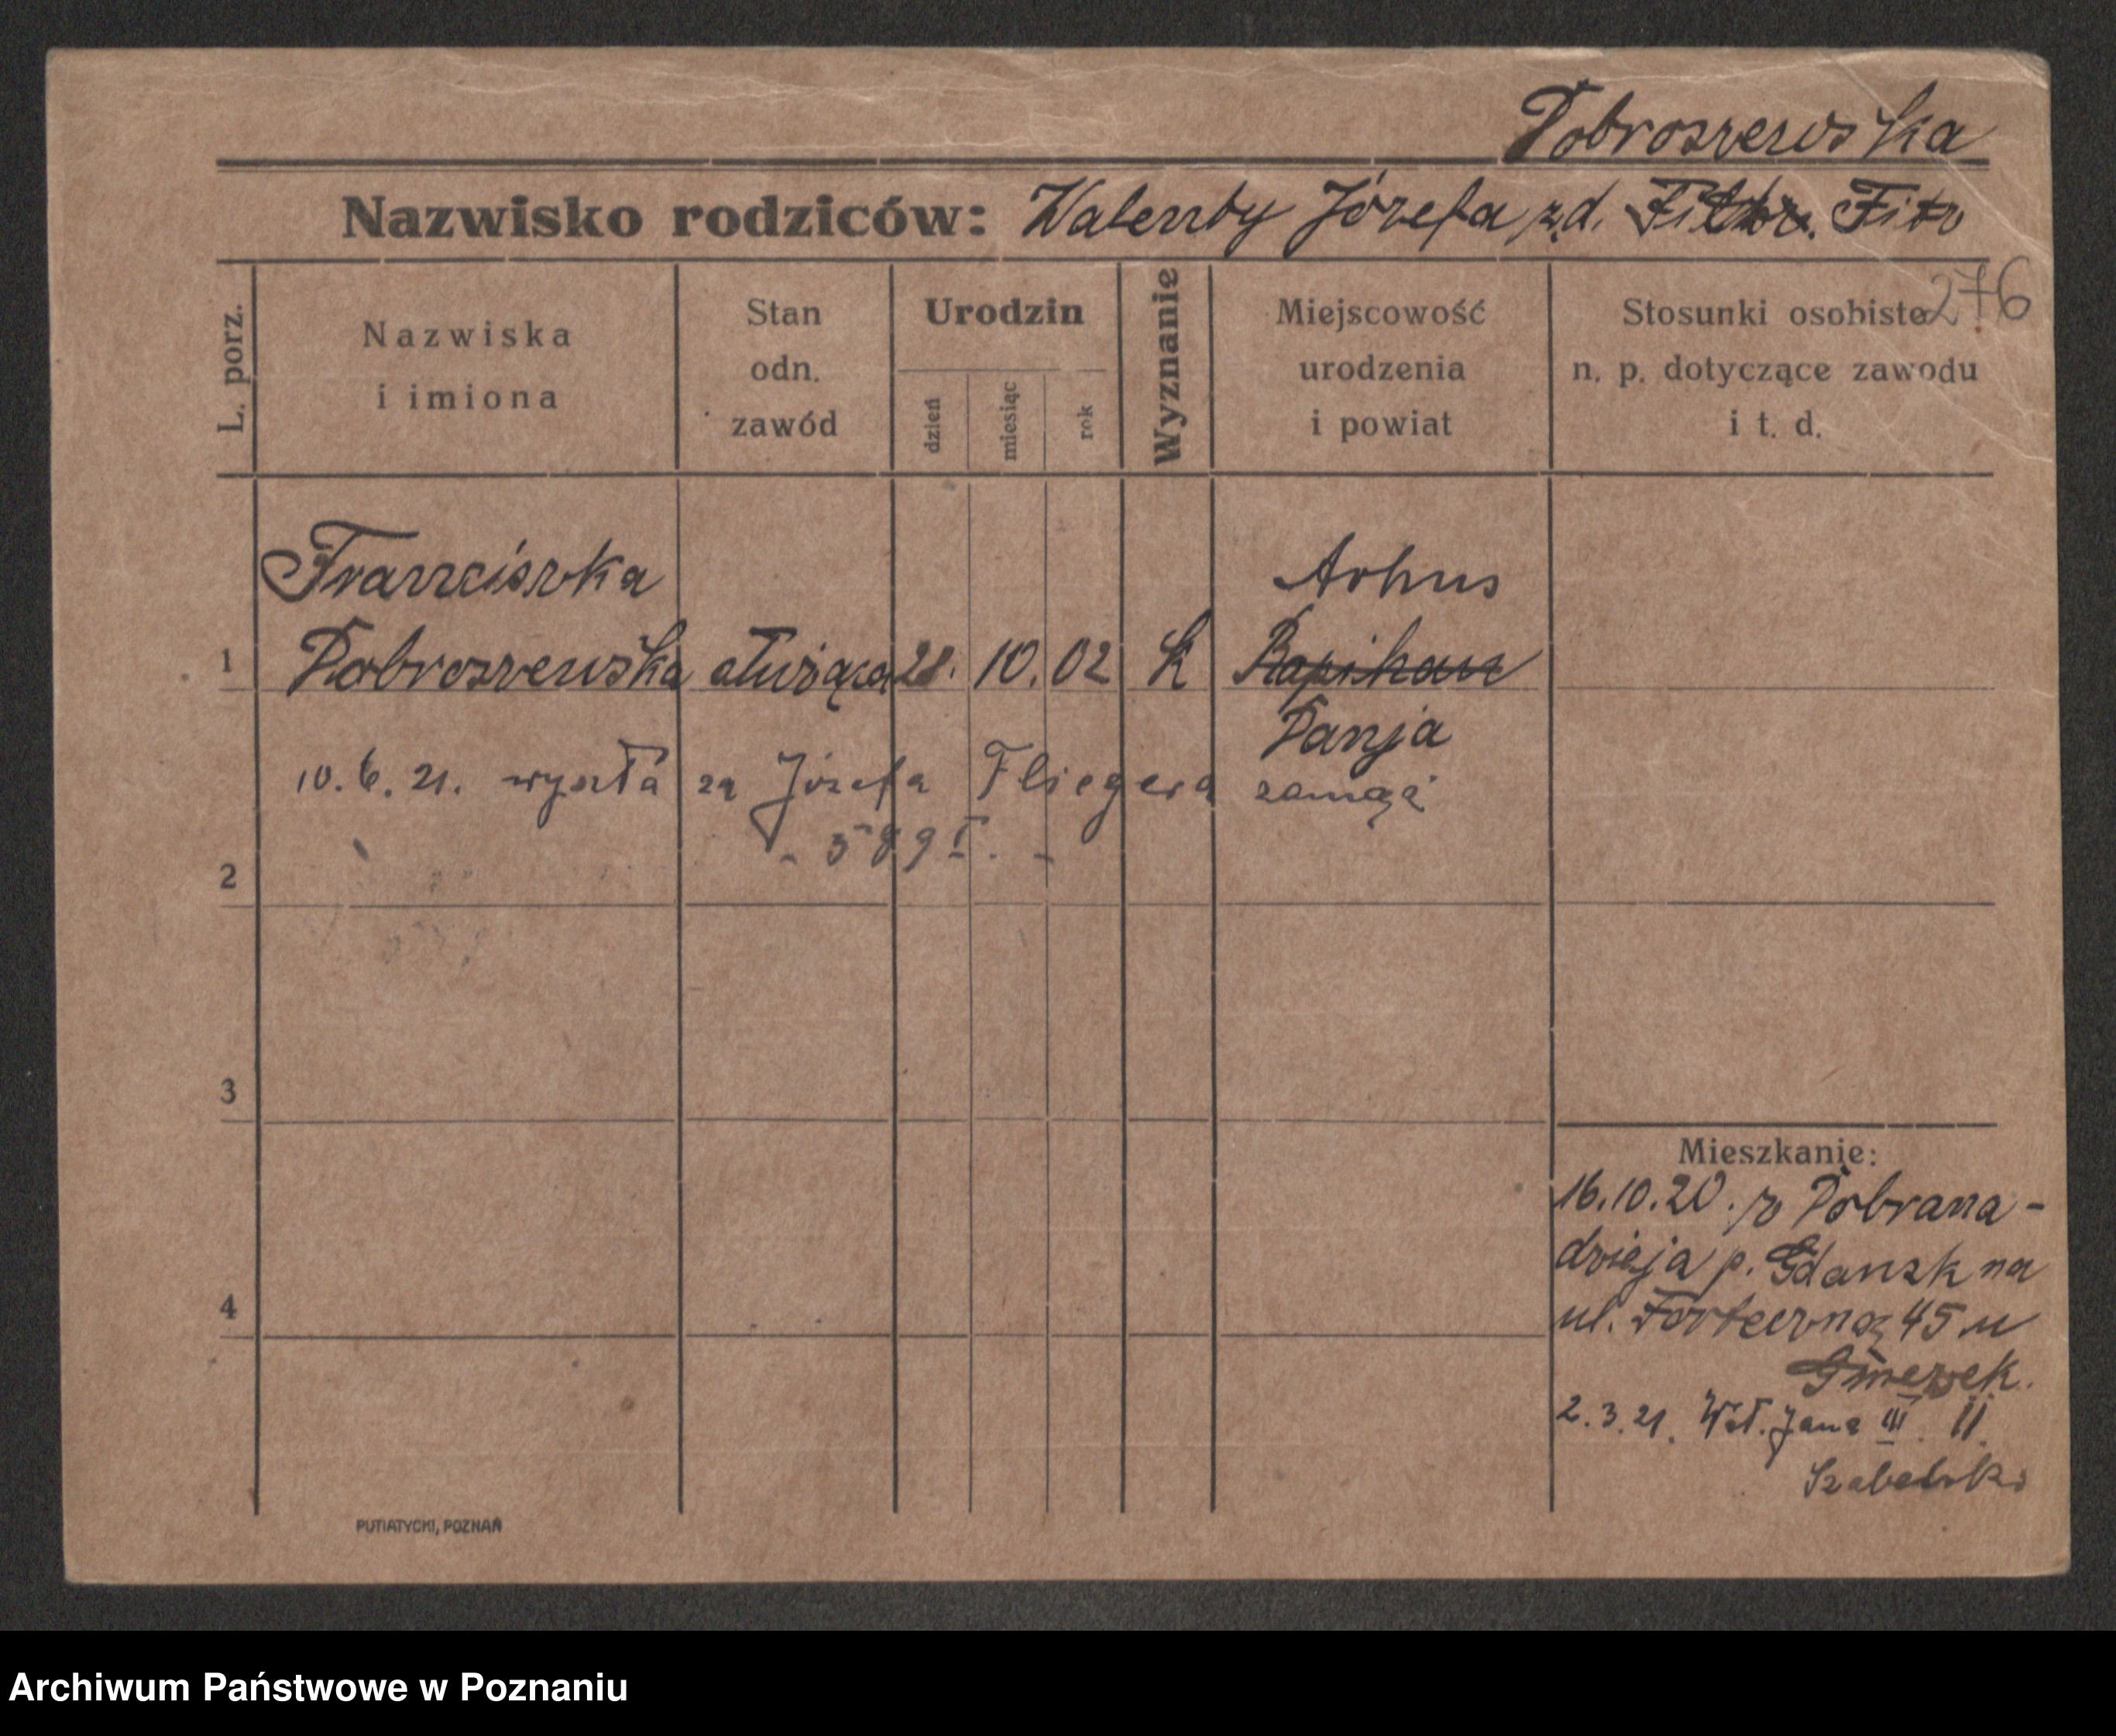 Dobroszewska
Nazwisko rodziców: Walenty Józefa z.d. Fitz
276
L. porz.
Nazwiska
i imiona
Stan
odn.
zawód
Urodzin
dzień
miesiąc
rok
Wyznanie
Miejscowość
urodzenia
i powiat
Stosunki osobiste
n. p. dotyczące zawodu
i t. d.
Franciszka
Arhus
1 Dobroszewska służąca 28. 10. 02 K
Danja
10. 6. 21. wyszła za Józefa Fliegera zamąż
- 589 I. -
2
3
4
Mieszkanie:
16.10.20. z Dobrana-
dzieja p. Gdansk na
ul. Forteczną 45 u
2.3.21. Wał. Jana III. 11.
Szabelski
PUTIATYCKI, POZNAŃ
Archiwum Państwowe w Poznaniu